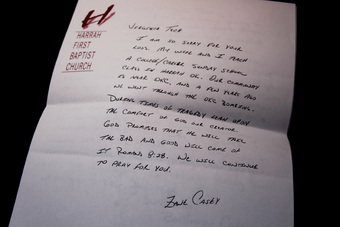 HARRAH
FIRST
BAPTIST
CHURCH
VIRGINIA TECH
I AM SO SORRY FOR YOUR
LOSS. MY WIFE AND I TEACH
A COLLEGE/CAREER SUNDAY SCHOOL
CLASS IN HARRAH OK. OUR COMMUNITY
IS NEAR OKC. AND A FEW YEARS AGO
WE WENT THROUGH THE OKC BOMBING.
DURING TIMES OF TRAGEDY LEAN UPON
THE COMFORT OF GOD OUR CREATOR.
GOD PROMISES THAT HE WILL TAKE
THE BAD AND GOOD WILL COME OF
IT ROMANS 8:28. WE WILL CONTINUE
TO PRAY FOR YOU.
CASEY